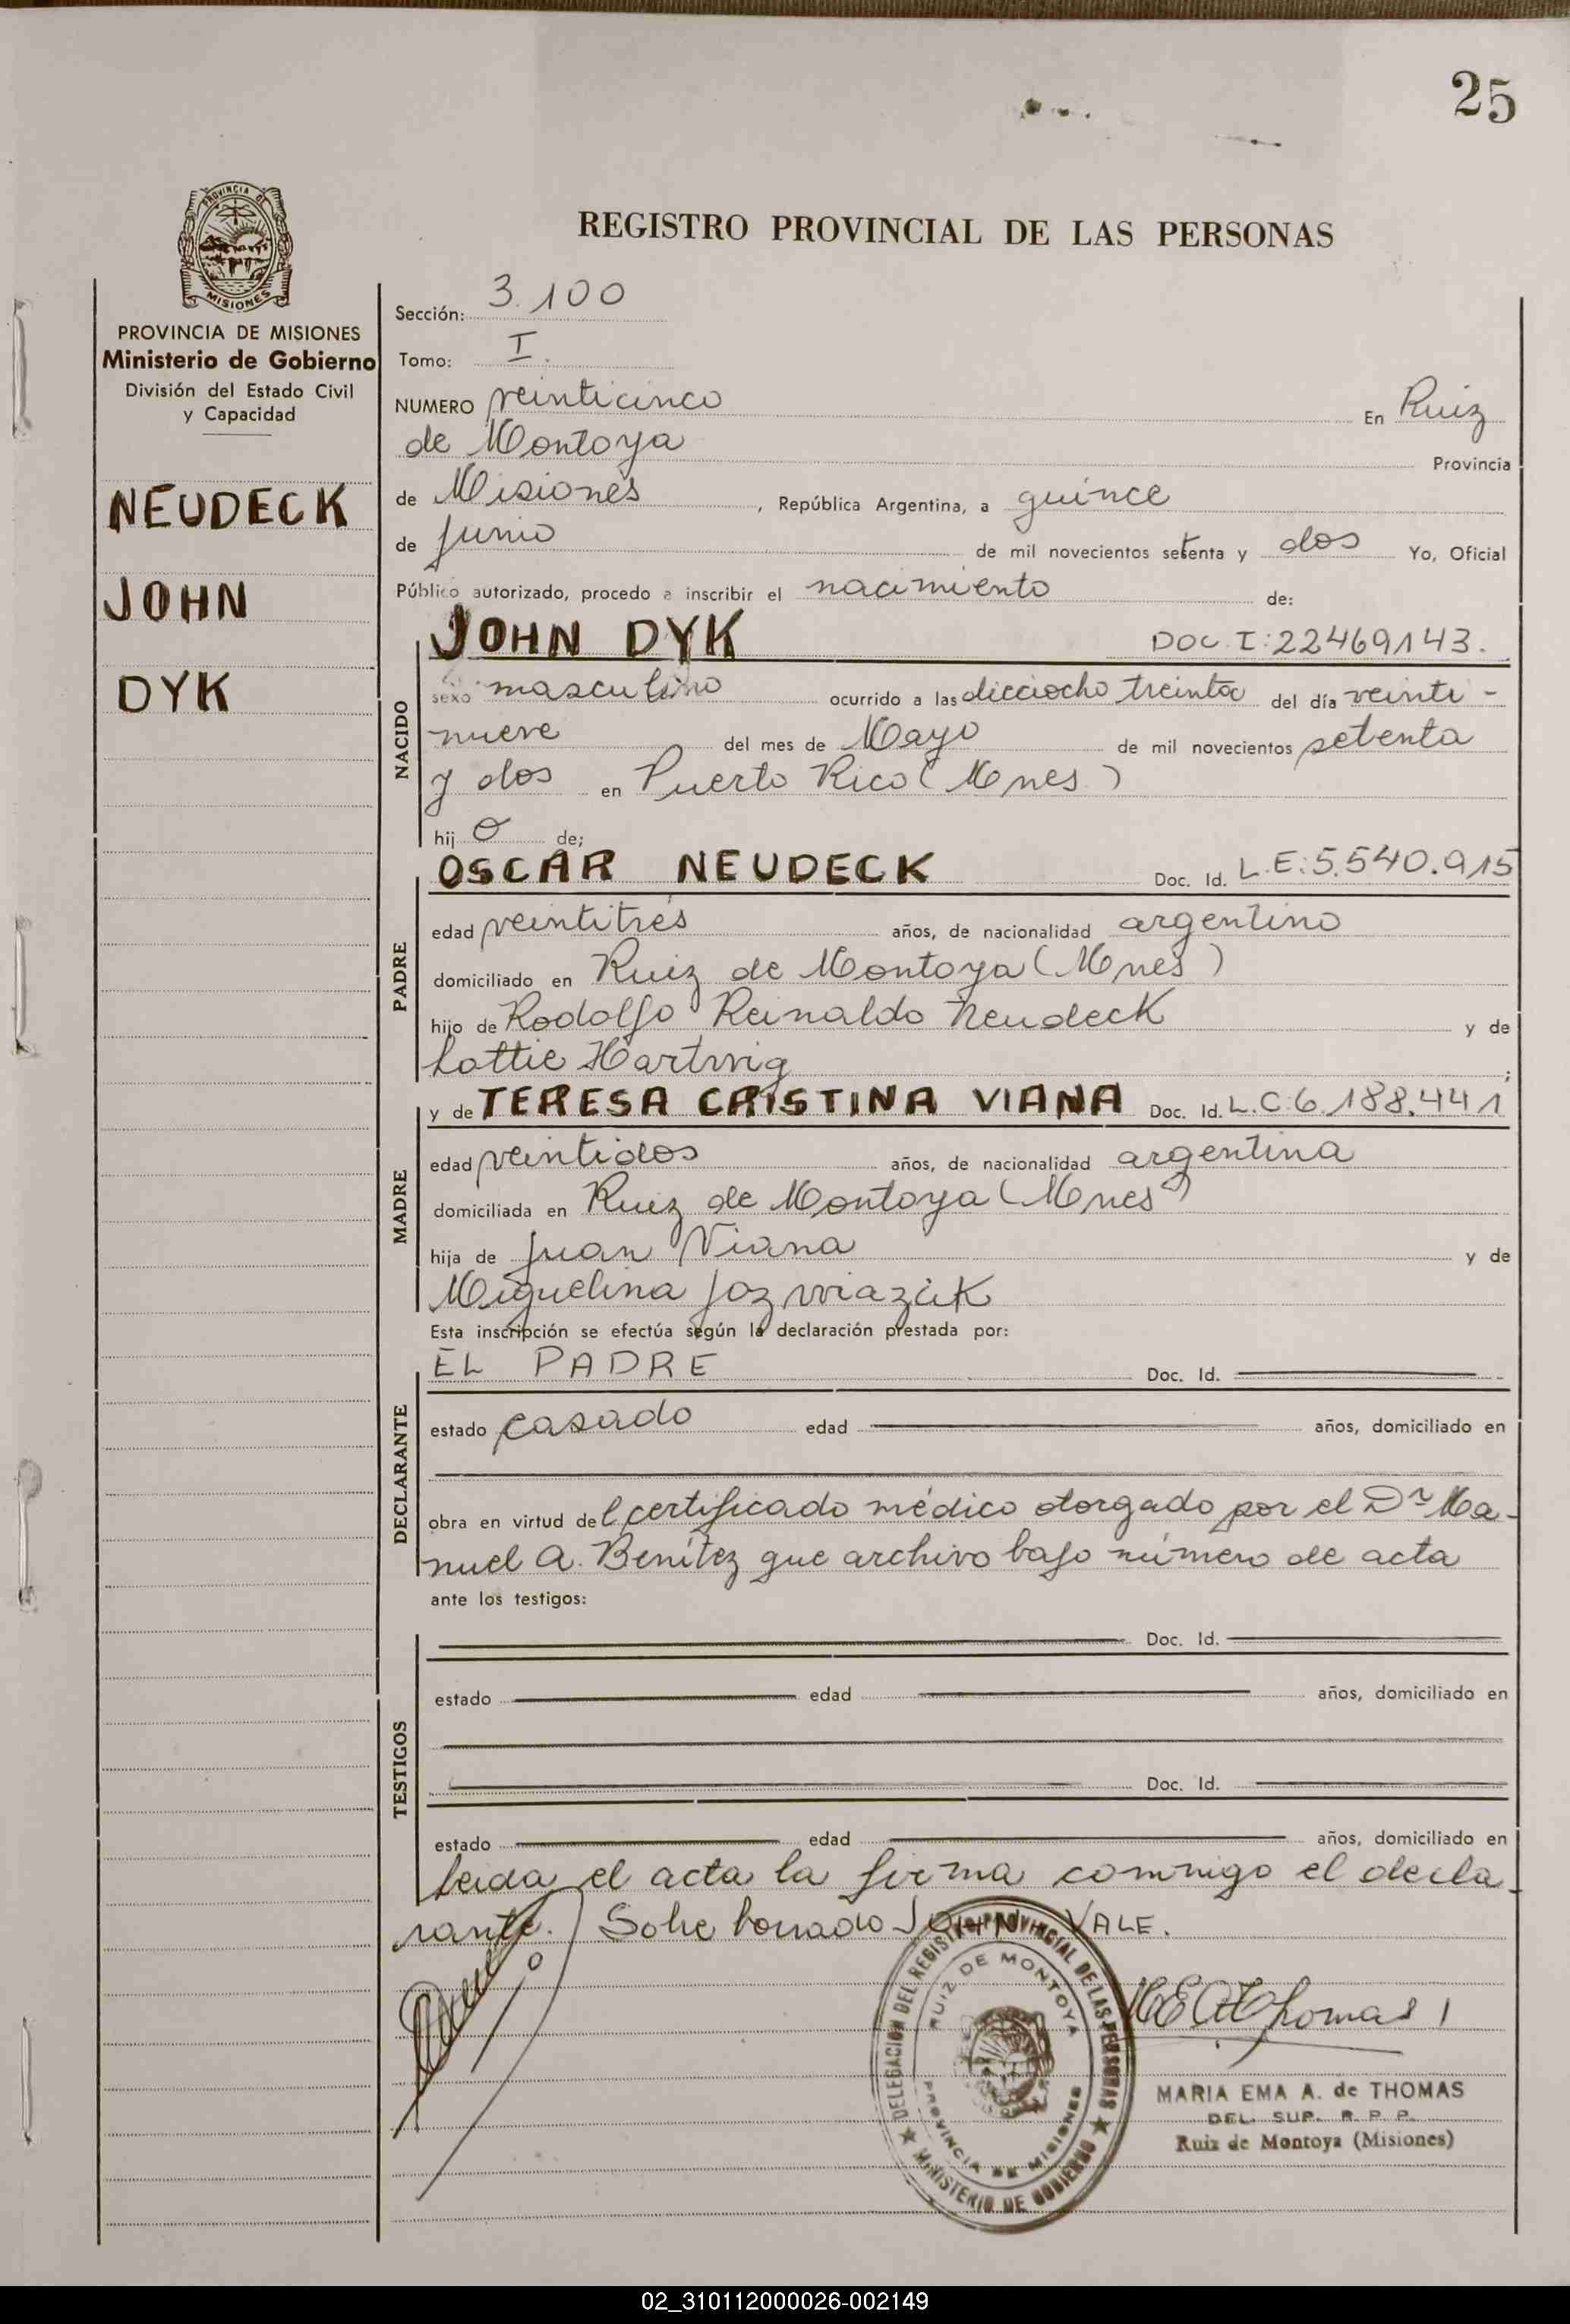 25
REGISTRO PROVINCIAL DE LAS PERSONAS
PROVINCIA DE
MISIONES
PROVINCIA DE MISIONES
Ministerio de Gobierno
División del Estado Civil
y Capacidad
NEUDECK
JOHN
DYK
Sección: 3.100
Tomo: I.
NUMERO veinticinco En Ruiz
de Montoya Provincia
de Misiones, República Argentina, a quince
de Junio de mil novecientos setenta y dos Yo, Oficial
Público autorizado, procedo a inscribir el nacimiento de:
JOHN DYK DOC. I: 22469143.
NACIDO
sexo masculino ocurrido a las dieciocho treinta del día veinti-
nueve del mes de Mayo de mil novecientos setenta
y dos en Puerto Rico (Mnes)
hij o de;
OSCAR NEUDECK Doc. Id. L.E: 5.540.915
PADRE
edad veintitrés años, de nacionalidad argentino
domiciliado en Ruiz de Montoya (Mnes)
hijo de Rodolfo Reinaldo Neudeck y de
Lottie Hartwig;
y de TERESA CRISTINA VIANA Doc. Id. L.C: 6.188.441
MADRE
edad veintidos años, de nacionalidad argentina
domiciliada en Ruiz de Montoya (Mnes)
hija de Juan Viana y de
Miguelina
Esta inscripción se efectúa según la declaración prestada por:
EL PADRE Doc. Id.
DECLARANTE
estado casado edad años, domiciliado en
obra en virtud del certificado médico otorgado por el Dr Ma-
nuel A. Benítez que archivo bajo número de acta
ante los testigos:
Doc. Id.
TESTIGOS
estado edad años, domiciliado en
Doc. Id.
estado edad años, domiciliado en
Leida el acta la firma conmigo el decla-
rante. Sobre borrado JOHN VALE.
DELEGACION DEL REGISTRO PROVINCIAL DE LAS PERSONAS
RUIZ DE MONTOYA
PROVINCIA DE MISIONES
MINISTERIO DE GOBIERNO
MARIA EMA A. de THOMAS
DEL. SUP. R. P. P.
Ruiz de Montoya (Misiones)
02_310112000026-002149